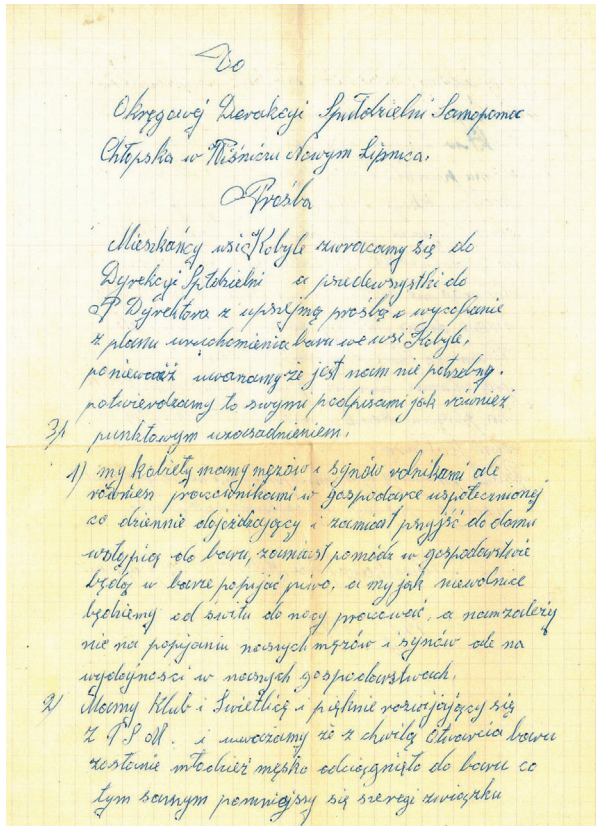 Do
Okręgowej Derakcyi Spułdzielni Samopomoc
Chłopska w Wiśniczu Nowym Lipnica.
Prośba
Mieszkańcy wsi Kobyle zwracamy się do
Dyrekcyi Spłdzielni a przedewszystki do
P Dyrektora z uprzejmą prośbą o wycofanie
z planu uruchomienia baru we wsi Kobyle,
ponieważ uwarzamy że jest nam nie potrzebny.
potwierdzamy to swymi podpisami jak również
punktowym uzasadnieniem.
1) my kobiety mamy mężów i synów rolnikami ale
również pracownikami w gospodarce uspołecznionej
co dziennie dojeżdzający i zamiast przyjść do domu
wstąpią do baru, zamiast pomódz w gospodarstwie
będą w barze popijać piwo, a my jak niewolnice
będziemy od świtu do nocy pracować, a nam zależy
nie na popijaniu naszych mężów i synów ale na
wydajności w naszych gospodarstwach.
2) Mamy Klub i Świetlicę i pięknie rozwijający się
Z P S M. i uważamy że z chwilą otwarcia baru
zostanie młodzież męska odciągnięta do baru co
tym samym pomniejszy się szeregi związku